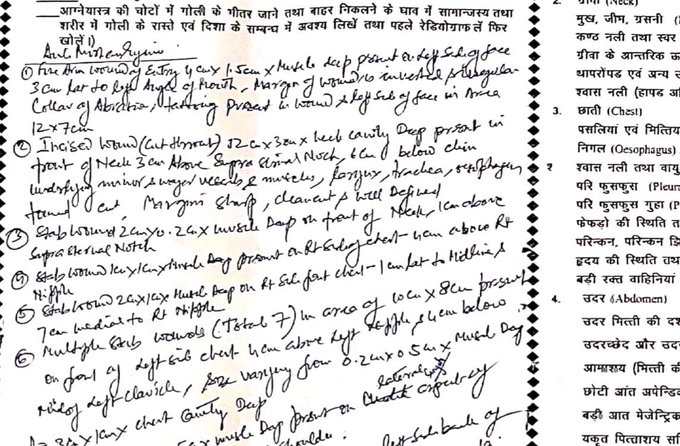 आग्नेयास्त्र की चोटों में गोली के भीतर जाने तथा बाहर निकलने के घाव में सामान्जस्य तथा
शरीर में गोली के रास्ते एवं दिशा के सम्बन्ध में अवश्य लिखें तथा पहले रेडियोग्राफ लें फिर
खोलें।)
Ante Mortem Injuries
① Fire Arm wound of Entry 4cm x 1.5cm x Muscle deep present on left side of face
3cm lat to left Angle of Mouth, Margin of wound is inverted & irregular
Collar of Abrasion, tattooing present in wound & left side of face in Area
12 x 7cm
② Incised wound (cut throat) 12cm x 3cm x neck cavity Deep present in
front of Neck 3cm Above Supra Sternal Notch, 6cm below chin
underlying minor & major vessels & muscles, larynx, trachea, oesophagus
found cut. Margins sharp, cleancut & well Defined
③ Stab wound 2cm x 0.2cm x muscle Deep on front of Neck, 1cm above
Supra Sternal Notch
④ Stab wound 1cm x 1cm x Muscle Deep present on Rt Side of chest - 4cm above Rt
Nipple
⑤ Stab wound 2cm x 1cm x Muscle Deep on Rt Side front chest - 1cm lat to Midline &
7cm medial to Rt Nipple
⑥ Multiple Stab wounds (Total 7) in area of 10cm x 8cm present
on front of left side chest 4cm above left nipple, & 4cm below
mid of left clavicle, size varying from 0.2cm x 0.5cm x Muscle Deep
3cm x 1cm x chest cavity Deep
x muscle Deep present on lateral
shoulder.
left side back of
2. ग्रीवा (Neck)
मुख, जीभ, ग्रसनी
कण्ठ नली तथा स्वर
ग्रीवा के आन्तरिक
थापरॉपड एवं अन्य
श्वास नली (हापड
3. छाती (Chest)
पसलियां एवं मित्तिय
निगल (Oesophagus)
श्वास नली तथा वायु
परि फुसफुस (Pleur
परि फुसफुस गुहा (P
फेफड़ो की स्थिति
परिन्कन, परिन्कन
हृदय की स्थिति तथ
बड़ी रक्त वाहिनियां
4. उदर (Abdomen)
उदर मित्ती की दश
उदरच्छेद और उदर
आमाशय (मित्ती की
छोटी आंत अपेन्डि
बड़ी आत मेजेन्ट्रिक
यकृत पित्ताशय